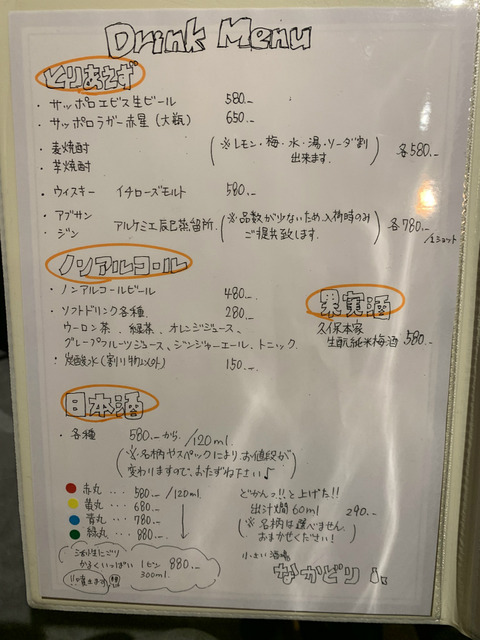 Drink Menu
とりあえず
・サッポロエビス生ビール 580.-
・サッポロラガー赤星(大瓶) 650.-
・麦焼酎
・芋焼酎
(※レモン・梅・水・湯・ソーダ割
出来ます。) 各580.-
・ウィスキー イチローズモルト 580.-
・アブサン
・ジン
アルケミエ辰巳蒸留所.
(※品数が少ないため、入荷時のみ
ご提供致します。) 各780.-
/1ショット
ノンアルコール
・ノンアルコールビール 480.-
・ソフトドリンク各種 280.-
ウーロン茶、緑茶、オレンジジュース、
グレープフルーツジュース、ジンジャーエール、トニック.
・炭酸水(割り物以外) 150.-
果実酒
久保本家
生酛純米梅酒 580.-
日本酒
・各種 580.-から/120ml.
(※名柄やスペックによりお値段が
変わりますので、おたずね下さい♪)
赤丸 … 580.- /120ml
黄丸 … 680.-
青丸 … 780.-
緑丸 … 880.-
どかんっ!!と上げた!!
出汁燗 60ml 290.-
(※名柄は選べません。
おまかせください!)
生にごり
かるくいっぱい 1ビン 880.-
300ml.
小さい酒場
なかどり